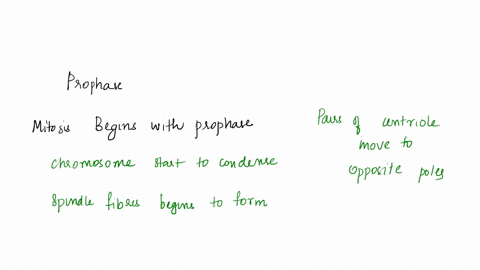 Prophase
Mitosis Begins with prophase
chromosome start to condense
Spindle fibres begins to form
Pairs of centriole
move to
opposite poles